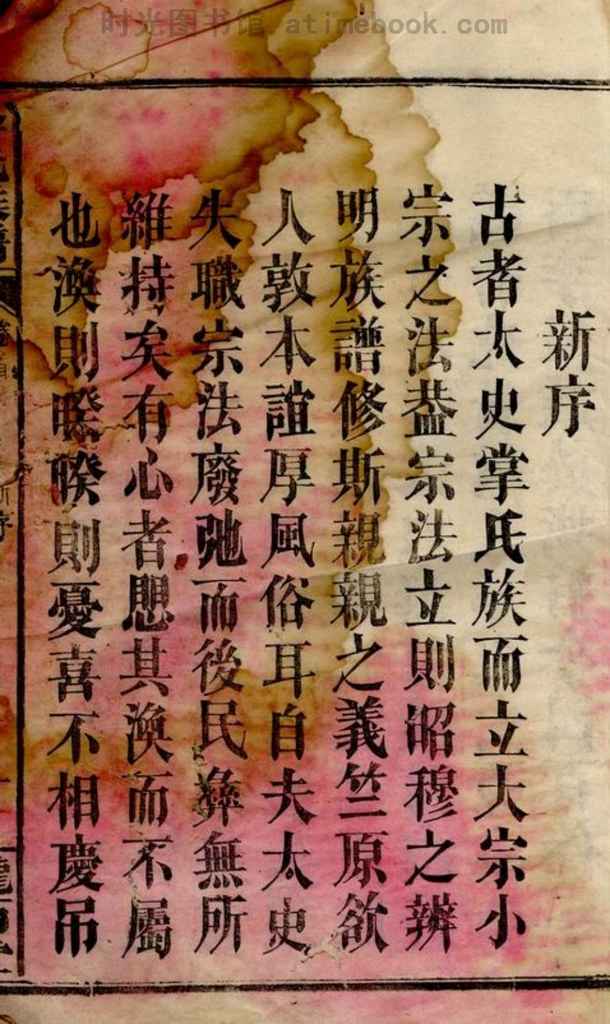 时光图书馆 www.atimebook.com
新序
古者太史掌氏族而立大宗小
宗之法葢宗法立則昭穆之辨
明族譜修斯親親之義竺原欲
人敦本誼厚風俗耳自夫太史
失職宗法廢弛而後民彝無所
維持矣有心者愳其渙而不屬
也渙則暌暌則憂喜不相慶吊